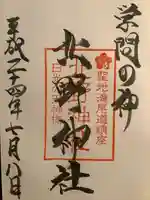 学問の神
北野神社
平成二十四年七月八日